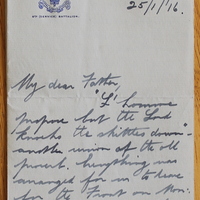 25/1/'16.
My dear Father,
"L'homme
propose but the Lord
knocks the skittles down" –
another version of the old
proverb. Everything was
arranged for us to leave
for the Front on Mon-